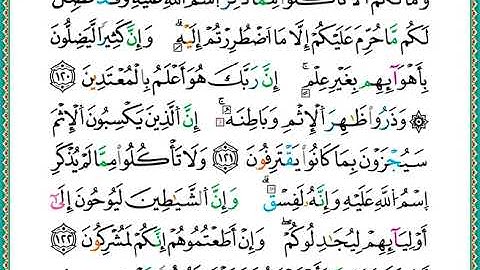 وَمَا لَكُمْ أَلَّا تَأْكُلُوا مِمَّا ذُكِرَ اسْمُ اللَّهِ عَلَيْهِ وَقَدْ فَصَّلَ
لَكُم مَّا حُرِّمَ عَلَيْكُمْ إِلَّا مَا اضْطُرِرْتُمْ إِلَيْهِ وَإِنَّ كَثِيرًا لَّيَضِلُّونَ
بِأَهْوَآئِهِم بِغَيْرِ عِلْمٍ إِنَّ رَبَّكَ هُوَ أَعْلَمُ بِالْمُعْتَدِينَ ١٢٠
۞ وَذَرُوا ظَاهِرَ الْإِثْمِ وَبَاطِنَهُ إِنَّ الَّذِينَ يَكْسِبُونَ الْإِثْمَ
سَيُجْزَوْنَ بِمَا كَانُوا يَقْتَرِفُونَ ١٢١ وَلَا تَأْكُلُوا مِمَّا لَمْ يُذْكَرِ
اسْمُ اللَّهِ عَلَيْهِ وَإِنَّهُ لَفِسْقٌ وَإِنَّ الشَّيَاطِينَ لَيُوحُونَ إِلَىٰ
أَوْلِيَآئِهِمْ لِيُجَادِلُوكُمْ وَإِنْ أَطَعْتُمُوهُمْ إِنَّكُمْ لَمُشْرِكُونَ ١٢٢